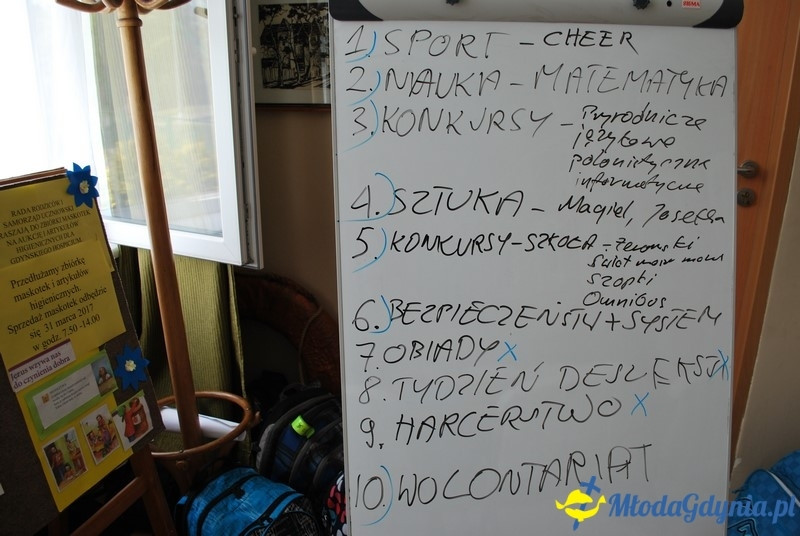 FIRMA
1.) SPORT - CHEER
2.) NAUKA - MATEMATYKA
3.) KONKURSY - Przyrodnicze
językowe
polonistyczne
informatyczne
4.) SZTUKA - Magiel,
5.) KONKURSY - SZKOŁA - Żeromski
Szopki
Omnibus
6.) BEZPIECZEŃSTW + SYSTEM
7. OBIADY X
8. TYDZIEŃ X
9. HARCERSTWO X
10.) WOLONTARIAT
RADA RODZICÓW I
SAMORZĄD UCZNIOWSKI
RASZAJĄ DO ZBIÓRKI MASKOTEK
NA AUKCJĘ I ARTYKUŁÓW
HIGIENICZNYCH DLA
GDYŃSKIEGO HOSPICJUM
Przedłużamy zbiórkę
maskotek i artykułów
higienicznych.
Sprzedaż maskotek odbędzie
się 31 marca 2017
w godz. 7:50 -14.00
wzywa nas
do czynienia dobra
MłodaGdynia.pl